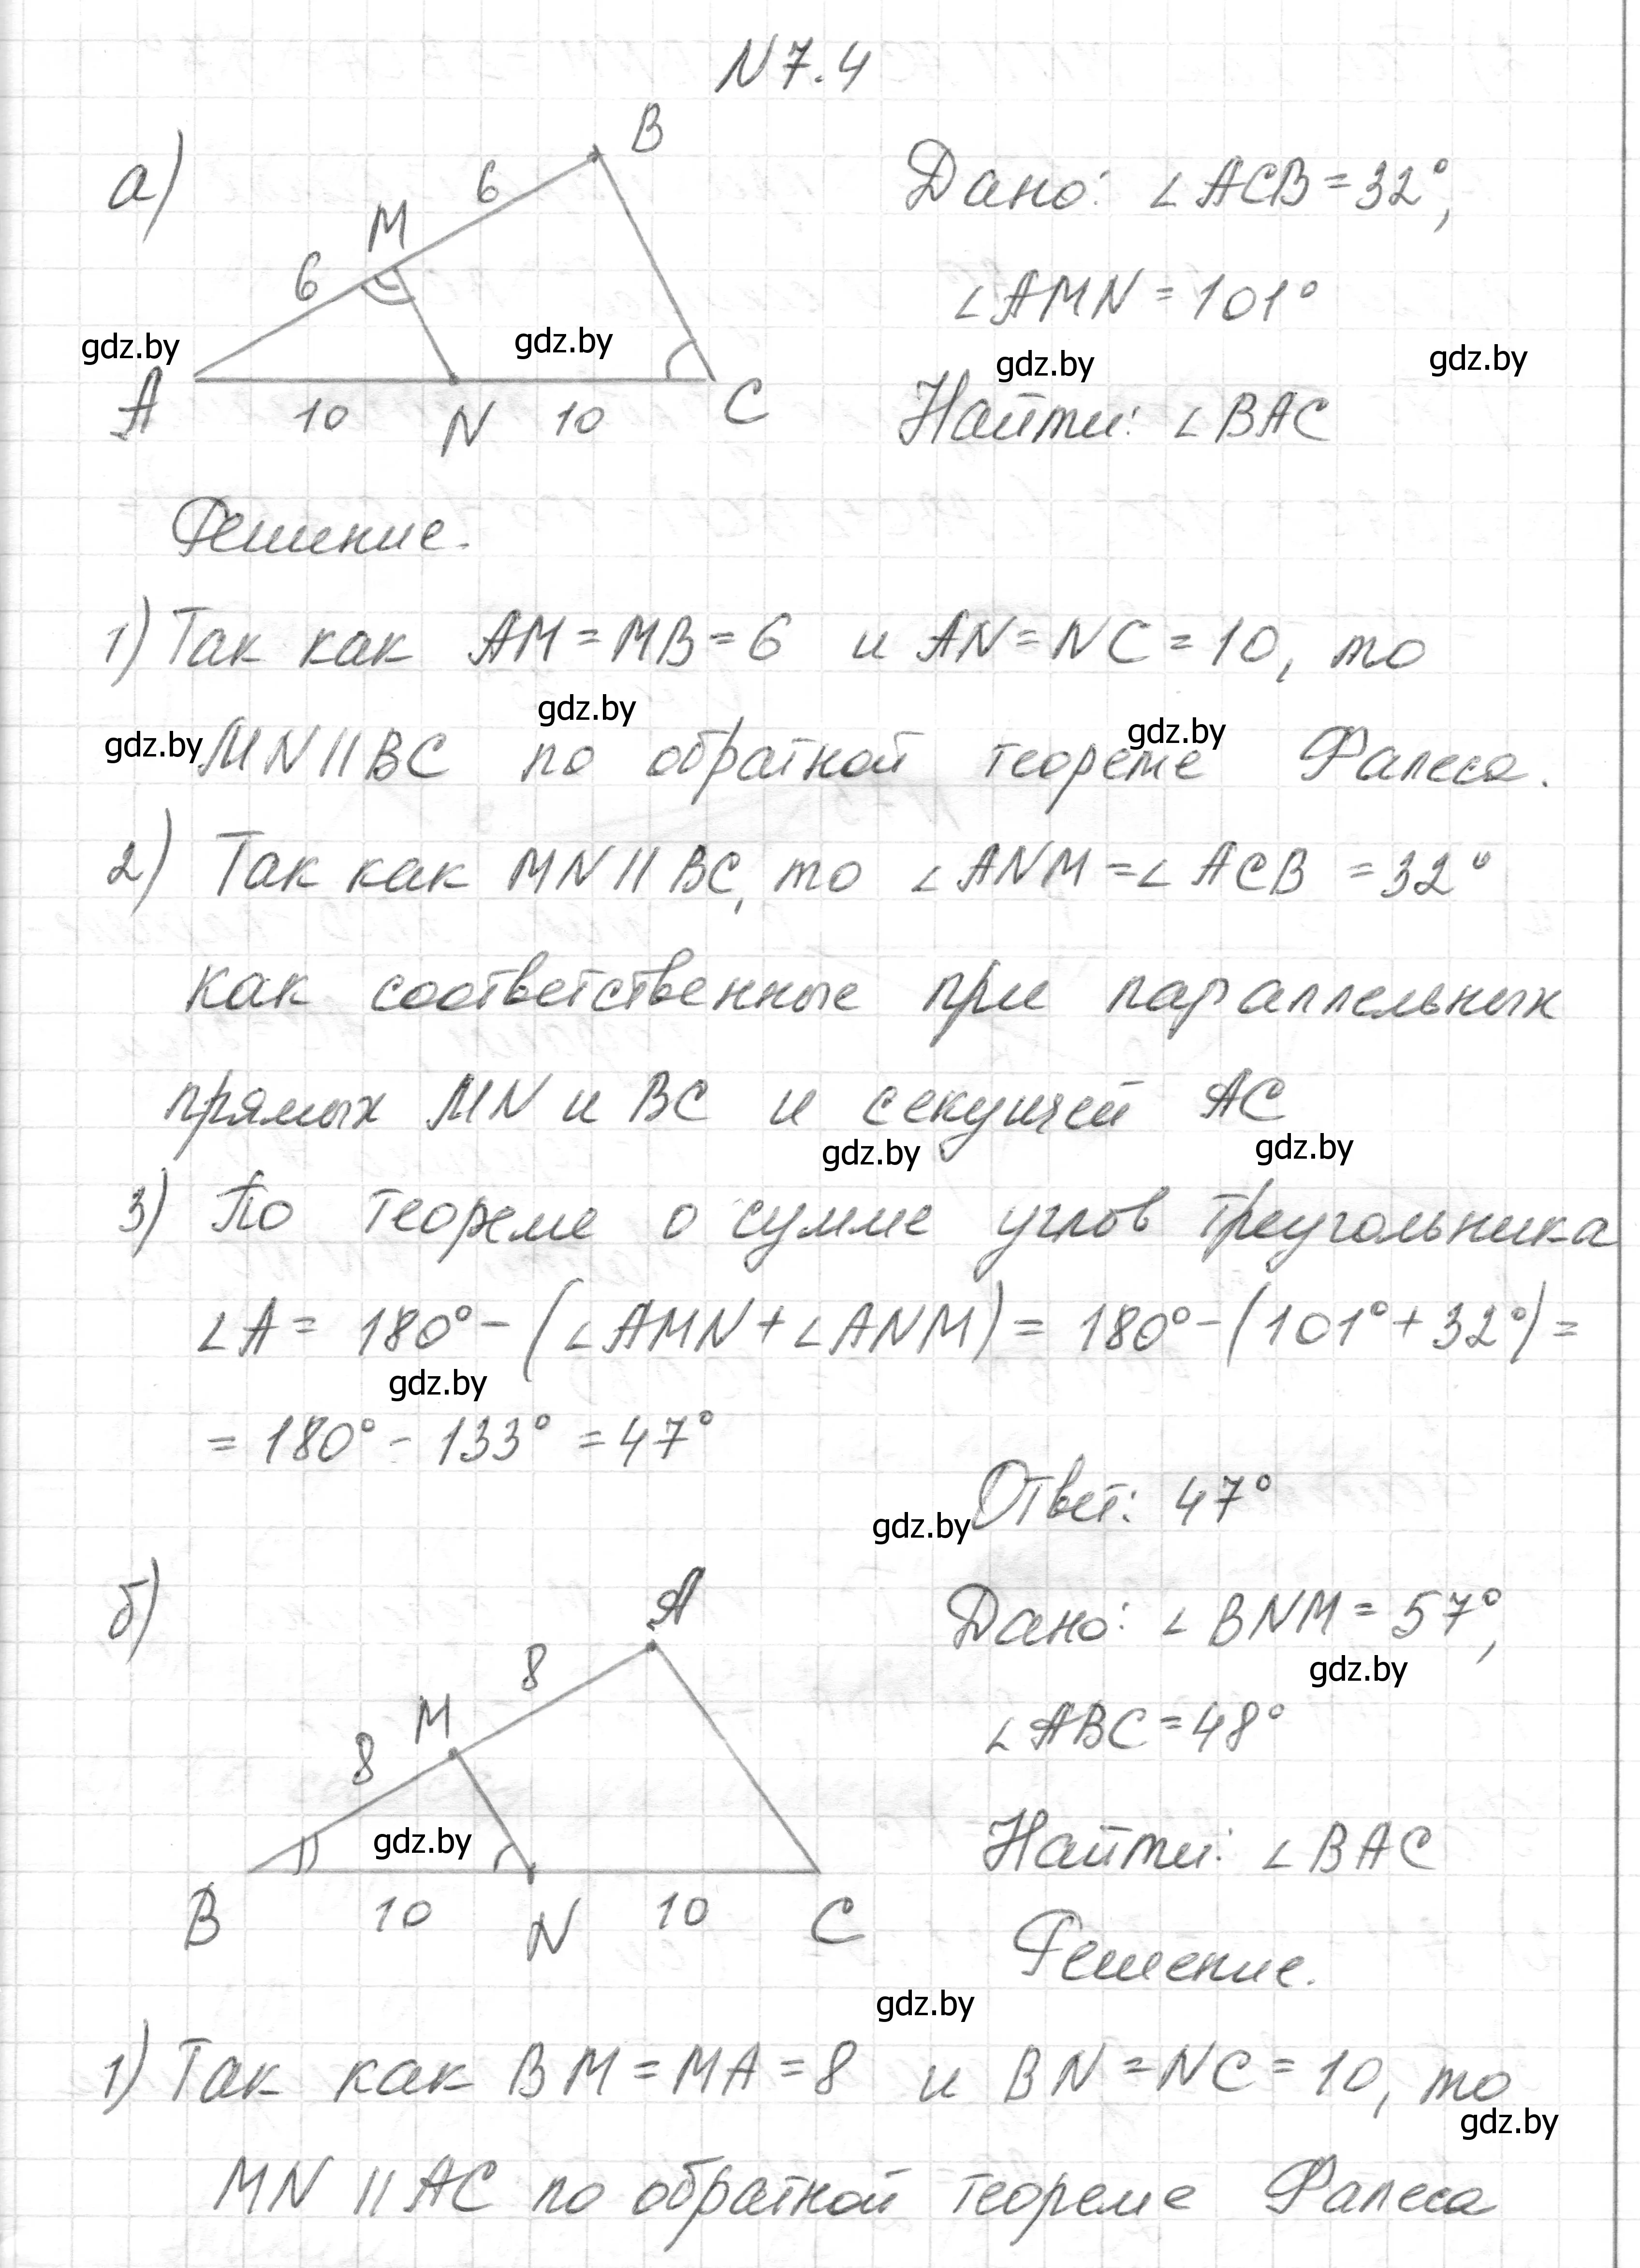 N 7.4
а)
B
6
M
6
A
10
N
10
C
Дано: ∠ACB = 32°,
∠AMN = 101°
gdz.by
gdz.by
gdz.by
gdz.by
Найти: ∠BAC
Решение.
1) Так как AM = MB = 6 и AN = NC = 10, то
gdz.by
gdz.by
gdz.by
MN || BC по обратной теореме Фалеса.
2) Так как MN || BC, то ∠ANM = ∠ACB = 32°
как соответственные при параллельных
прямых MN и BC и секущей AC
gdz.by
gdz.by
3) По теореме о сумме углов треугольника
∠A = 180° - (∠AMN + ∠ANM) = 180° - (101° + 32°) =
gdz.by
= 180° - 133° = 47°
gdz.by
Ответ: 47°
б)
A
8
M
8
B
10
N
10
C
gdz.by
Дано: ∠BNM = 57°,
gdz.by
∠ABC = 48°
Найти: ∠BAC
Решение.
gdz.by
1) Так как BM = MA = 8 и BN = NC = 10, то
gdz.by
MN || AC по обратной теореме Фалеса